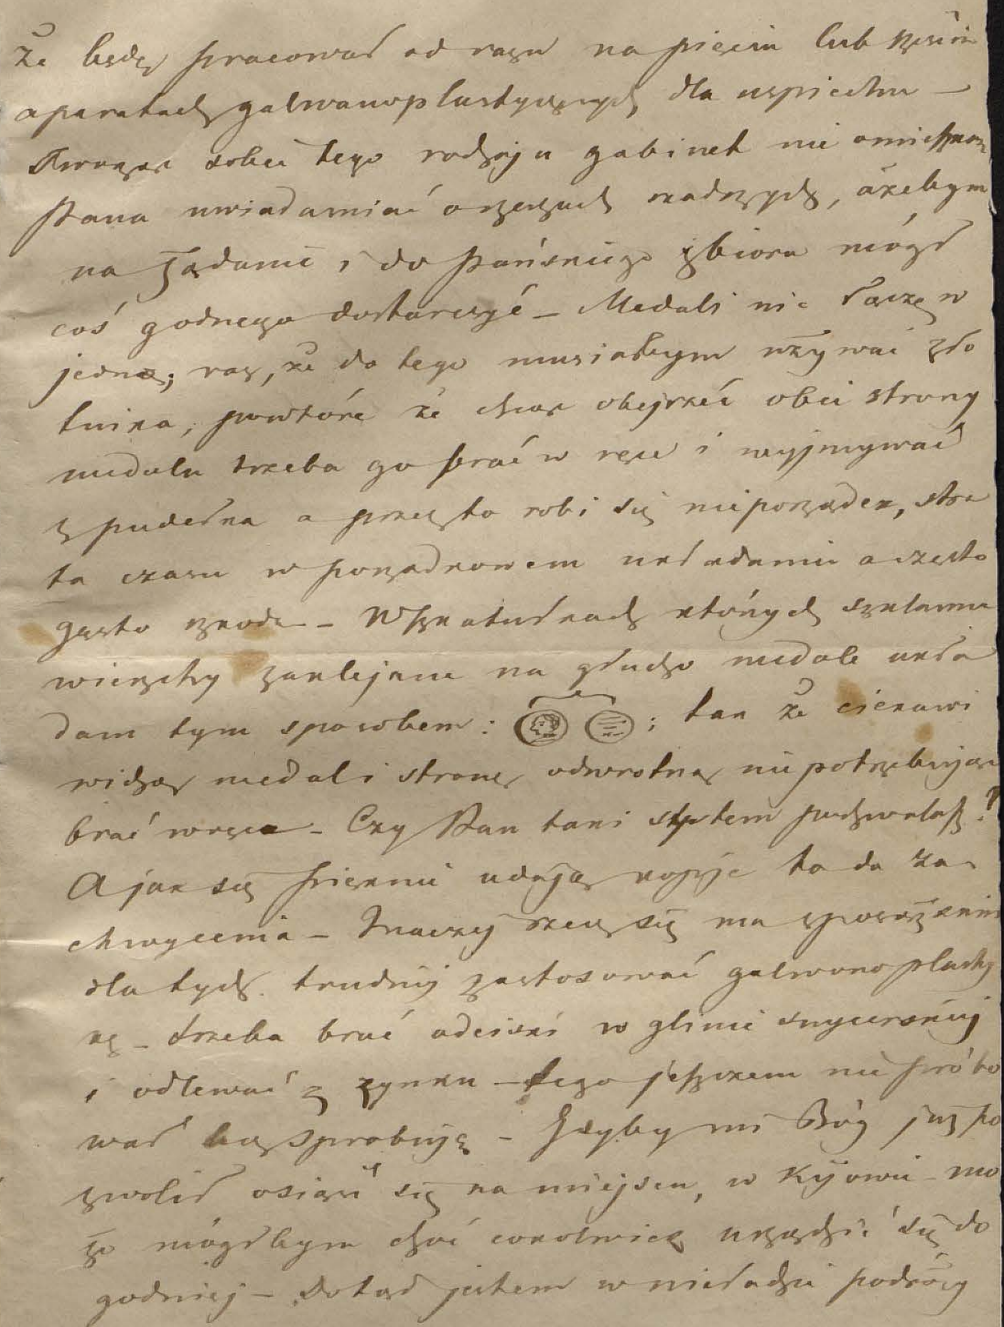 że będę pracował od razu na pięciu lub sześciu
aparatach galwanoplastycznych dla uspiechu —
Tworząc sobie tego rodzaju gabinet nie omieszkam
Pana uwiadamiać o rzeczach rzadszych, ażebym
na żądanie i do Pańskiego zbioru mógł
coś godnego dostarczyć — Medali nie łączę w
jedną; raz, że do tego musiałbym używać zło
tnika, powtóre że chcąc obejrzéć obie strony
medalu trzeba go brać w ręce i wyjmywać
z pudełka a przez to robi się nieporządek, stra
ta czasu w porządkowem układaniu a często
gęsto szkoda — W szkatułkach których szklanne
wierzchy zaklejane na głucho medale ukła
dam tym sposobem: ; tak że ciekawi
widzą medal i stronę odwrotną nie potrzebując
brać w ręce — Czy Pan taki system pochwalasz?
A jak się pięknie udają kopije to do za
chwycenia — Inaczéj rzecz się ma z
dla tych trudniéj zastosować galwanoplasty
kę — trzeba brać odciski w glinie snycerskiéj
i odlewać z zynku — tego jeszczem nie próbo
wał lecz sprobuję — Gdyby mi Bóg już po
zwolił osiąść się na miejscu, w Kijowie — mo
że mógłbym choć cokolwiek urządzić się do
godniéj — Dotąd jestem w nieładzie podróży